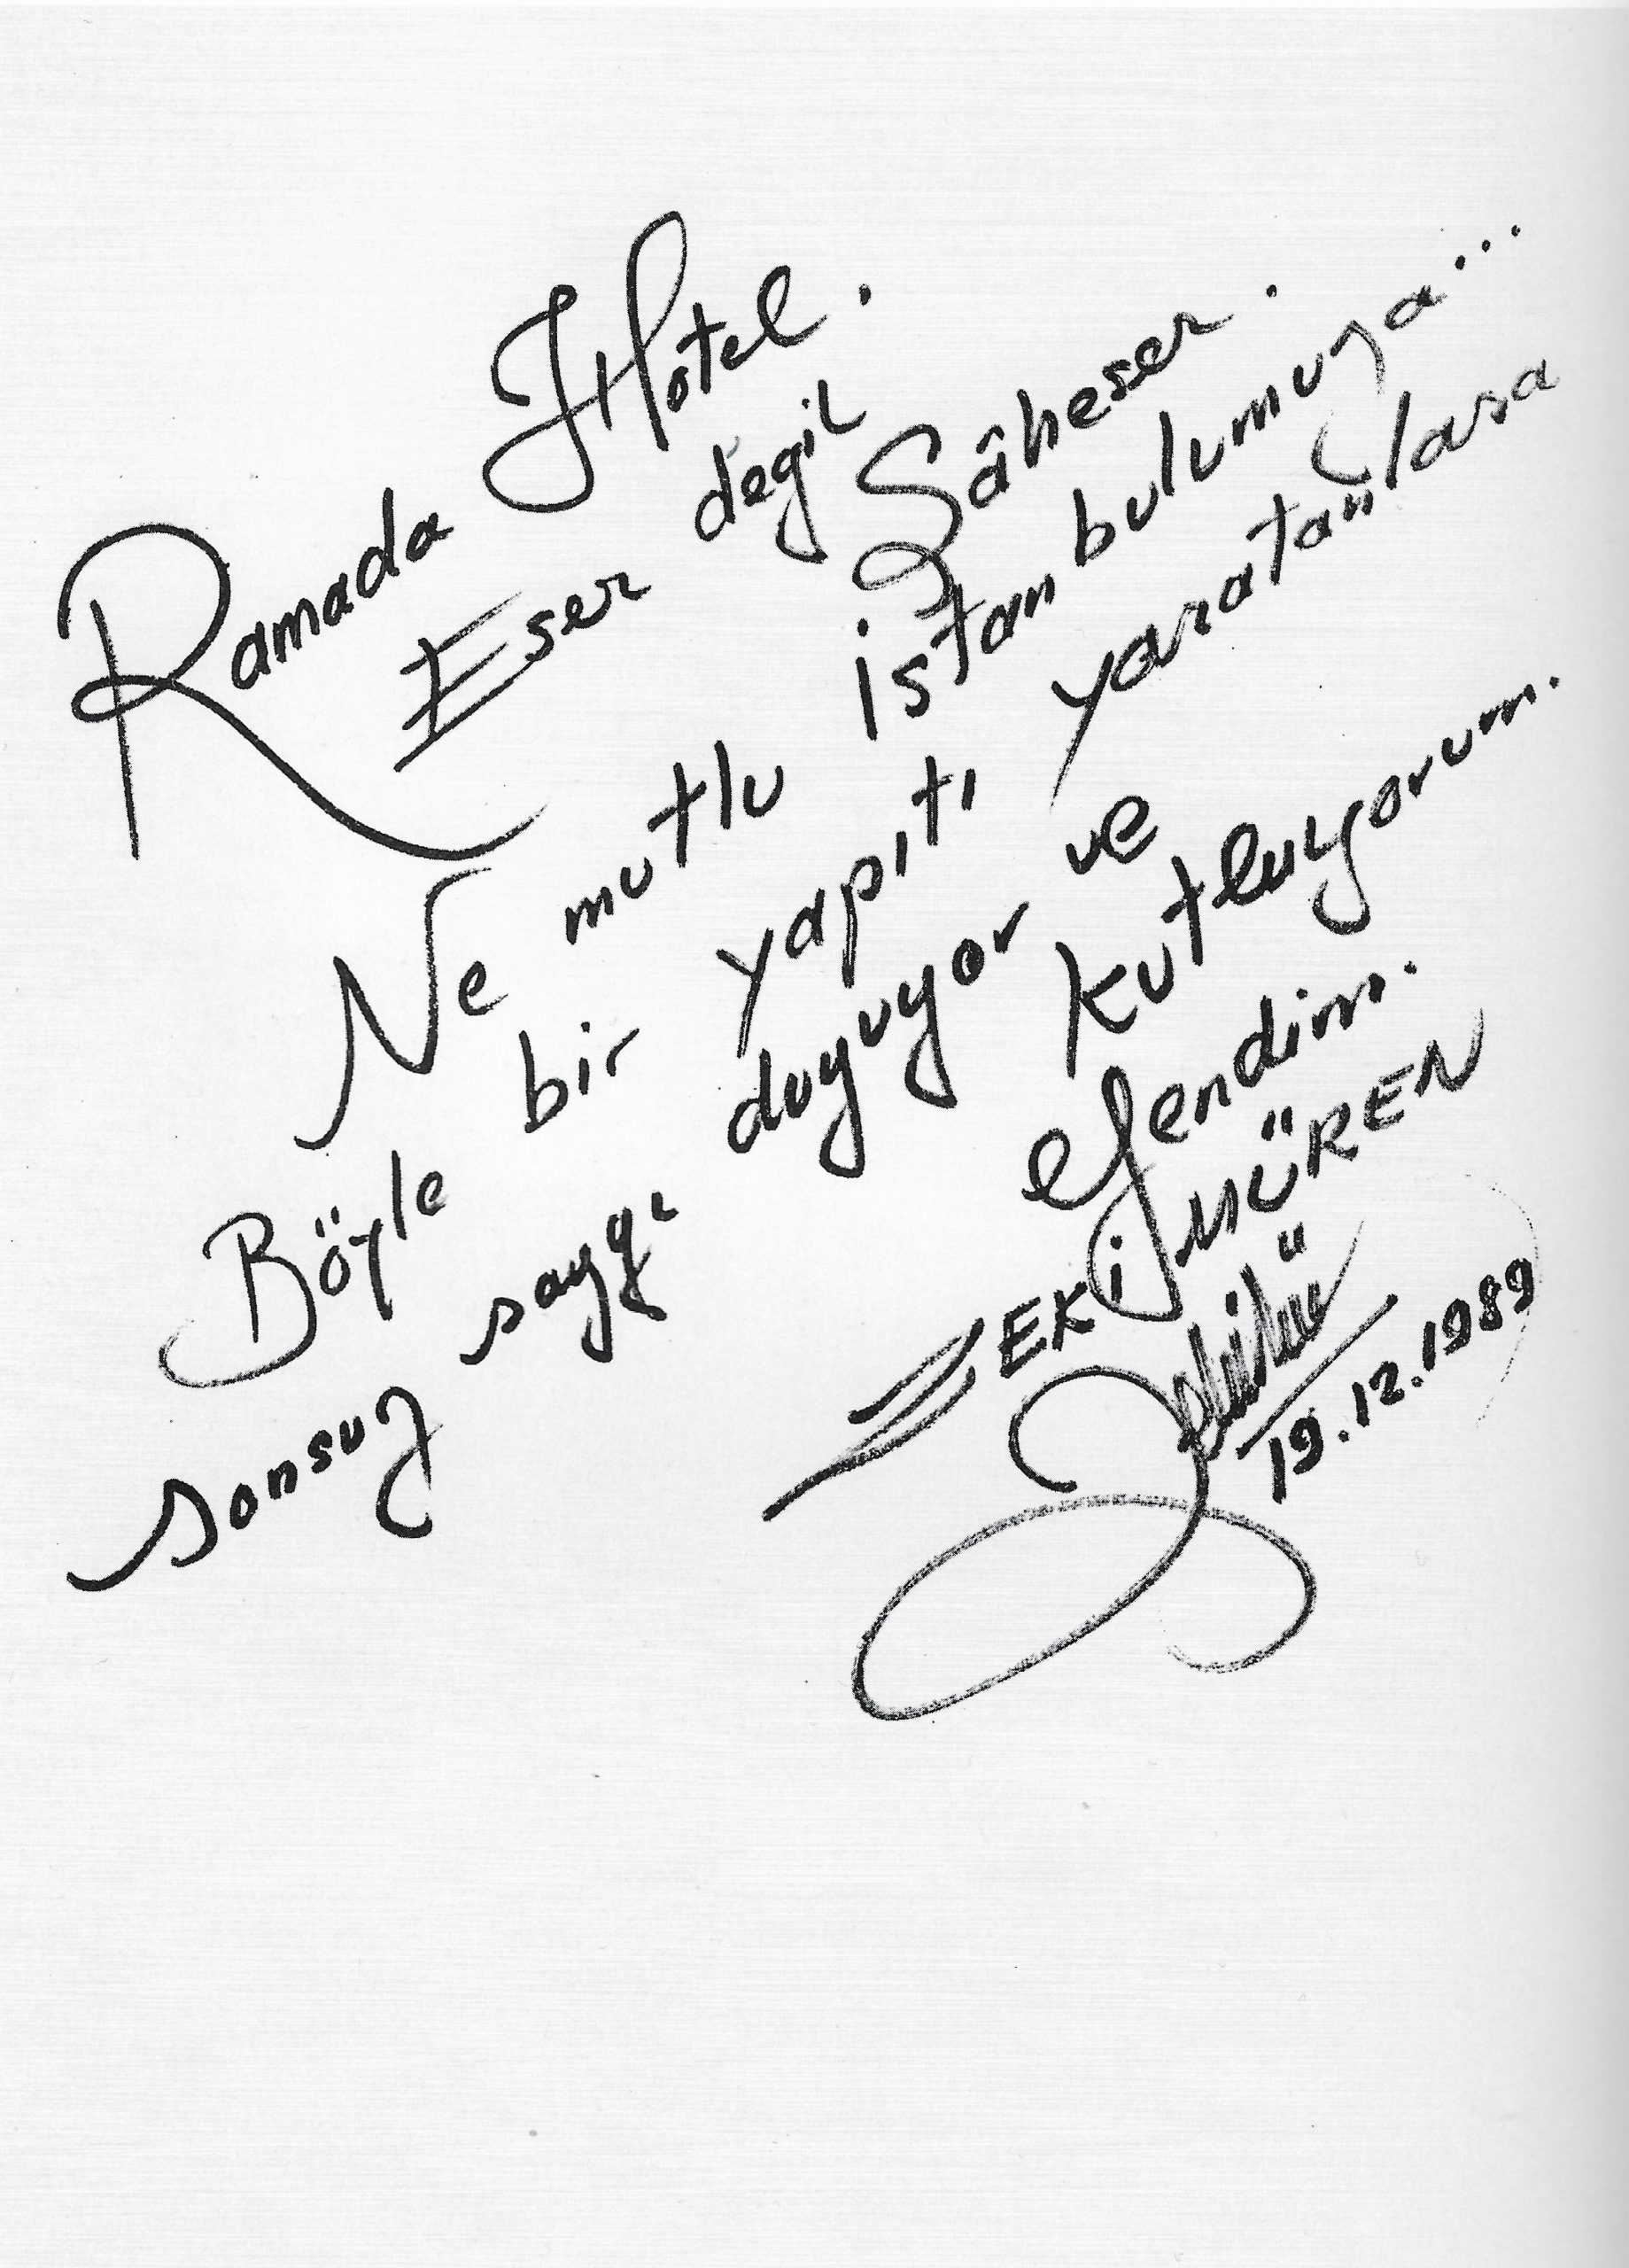 Ramada Hotel.
Eser değil Şâheser.
Ne mutlu İstanbulumuza...
Böyle bir yapıtı yaratanlara
sonsuz saygı duyuyor ve
kutluyorum.
efendim.
ZEKİ MÜREN
19.12.1989